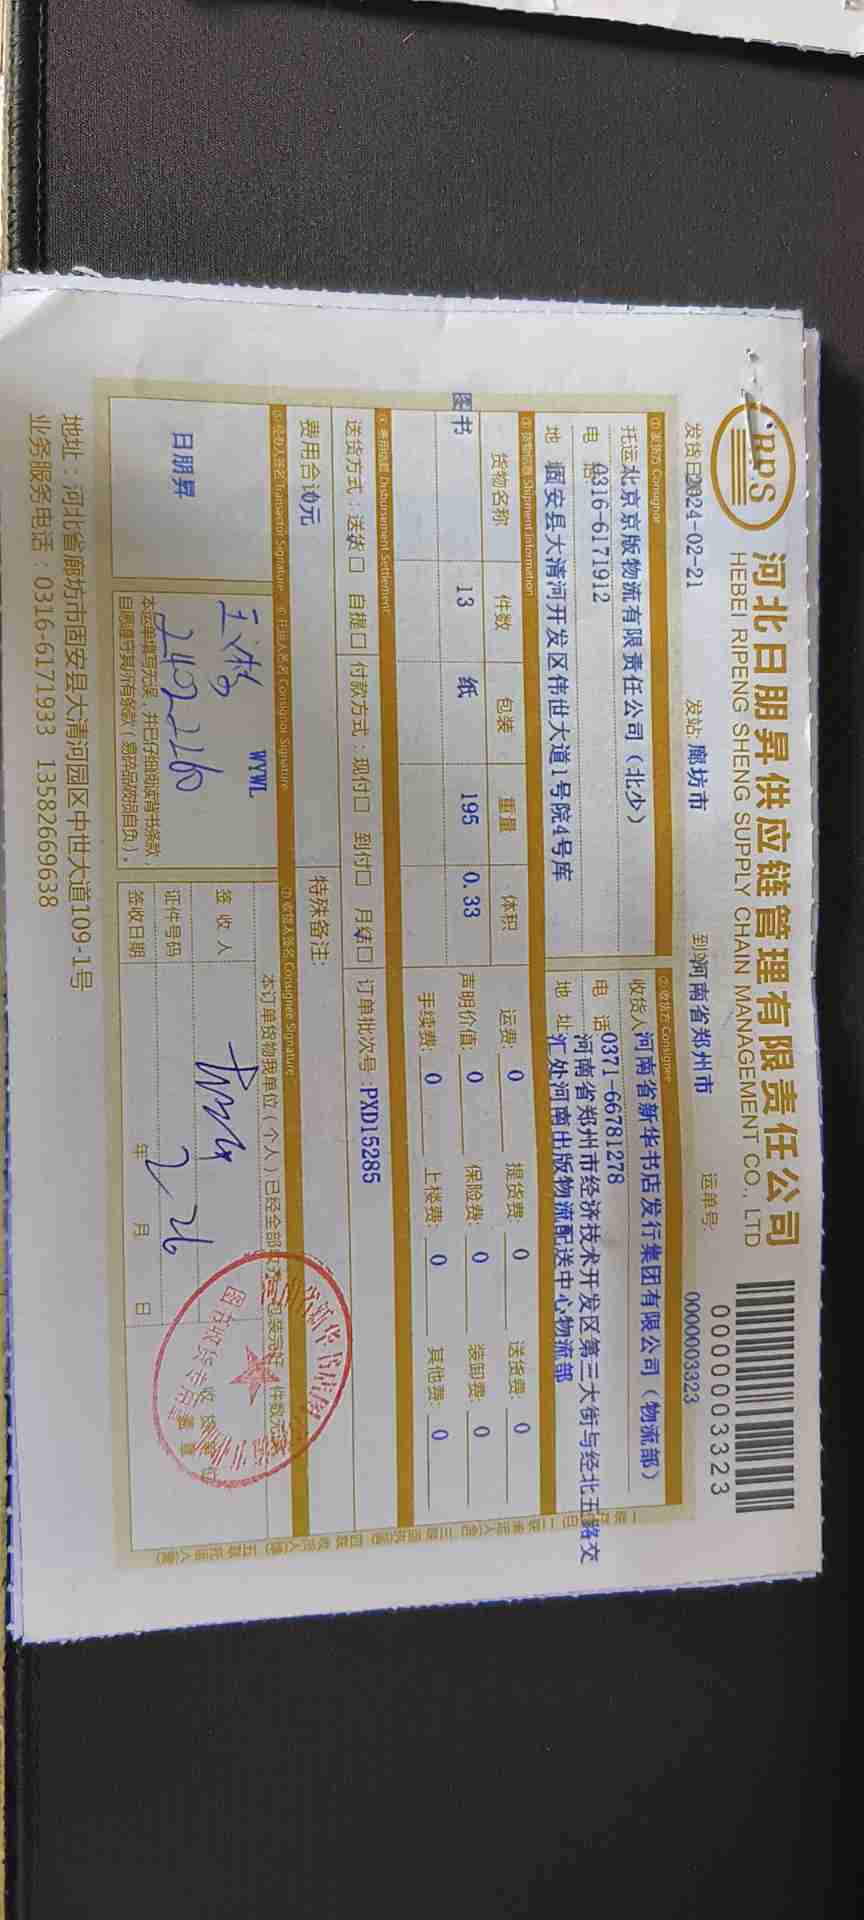 RPS
河北日朋昇供应链管理有限责任公司
HEBEI RIPENG SHENG SUPPLY CHAIN MANAGEMENT CO., LTD
0000003323
发货日 2024-02-21 发站: 廊坊市 到站 河南省郑州市 运单号: 0000003323
①发货方 Consignor ②收货方 Consignee
托运 北京京版物流有限责任公司(北少) 收货人 河南省新华书店发行集团有限公司(物流部)
电 话 0316-6171912 电 话 0371-66781278
地 固安县大清河开发区伟世大道1号院4号库 地 址 河南省郑州市经济技术开发区第三大街与经北五路交
汇处河南出版物流配送中心物流部
③货物信息 Shipment Information
货物名称 件数 包装 重量 体积 运费: 0 提货费: 0 送货费: 0
图书 13 纸 195 0.33 声明价值: 0 保险费: 0 装卸费: 0
手续费: 0 上楼费: 0 其他费: 0
④费用信息 Disbursement Settlement
送货方式: 送货□ 自提□ 付款方式: 现付□ 到付□ 月结□ 订单批次号: PXD15285
费用合计 0元 特殊备注:
⑤经办人签名 Transactor Signature ⑥托运人签名 Consignor Signature ⑦收货人签名 Consignee Signature
日朋昇
WYWL
240226
本运单填写无误,并已仔细阅读背书条款,
自愿遵守其所有条款(易碎品破损自负)。
本订单货物我单位(个人)已经全部
签 收 人
证件号码
签收日期 年 月 日
2 26
河南省新华书店
地址:河北省廊坊市固安县大清河园区中世大道109-1号
业务服务电话:0316-6171933 13582669638